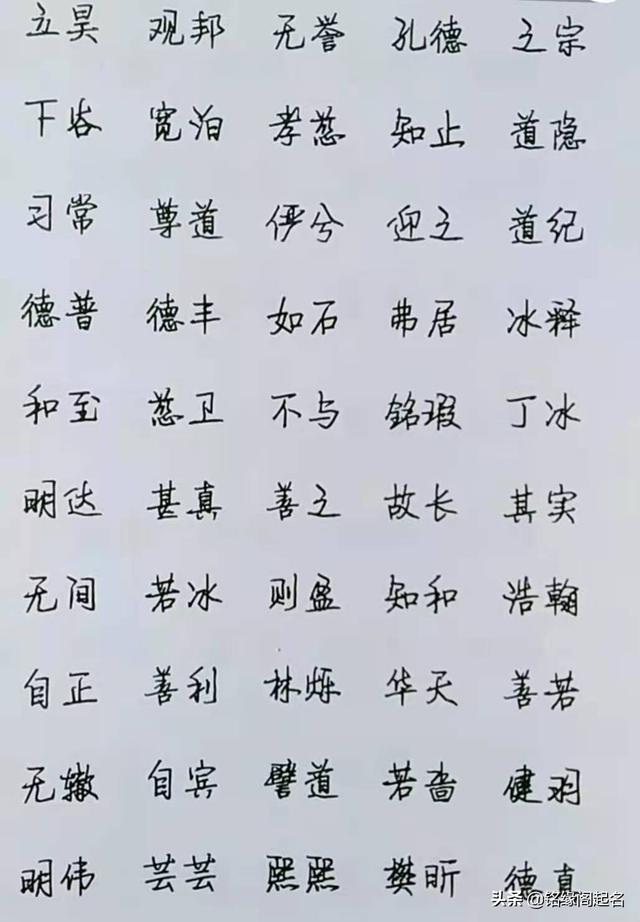 立昊 观邦 无誉 孔德 之宗
下谷 宽泊 孝慈 知止 道隐
习常 尊道 俨兮 迎之 道纪
德普 德丰 如石 弗居 冰释
和至 慈卫 不与 铭瑕 丁冰
明达 甚真 善之 故长 其实
无间 若冰 则盈 知和 浩翰
自正 善利 林烁 华天 善若
无辙 自宾 譬道 若啬 健羽
明伟 芸芸 熙熙 樊昕 德真
头条 @铭缘阁起名